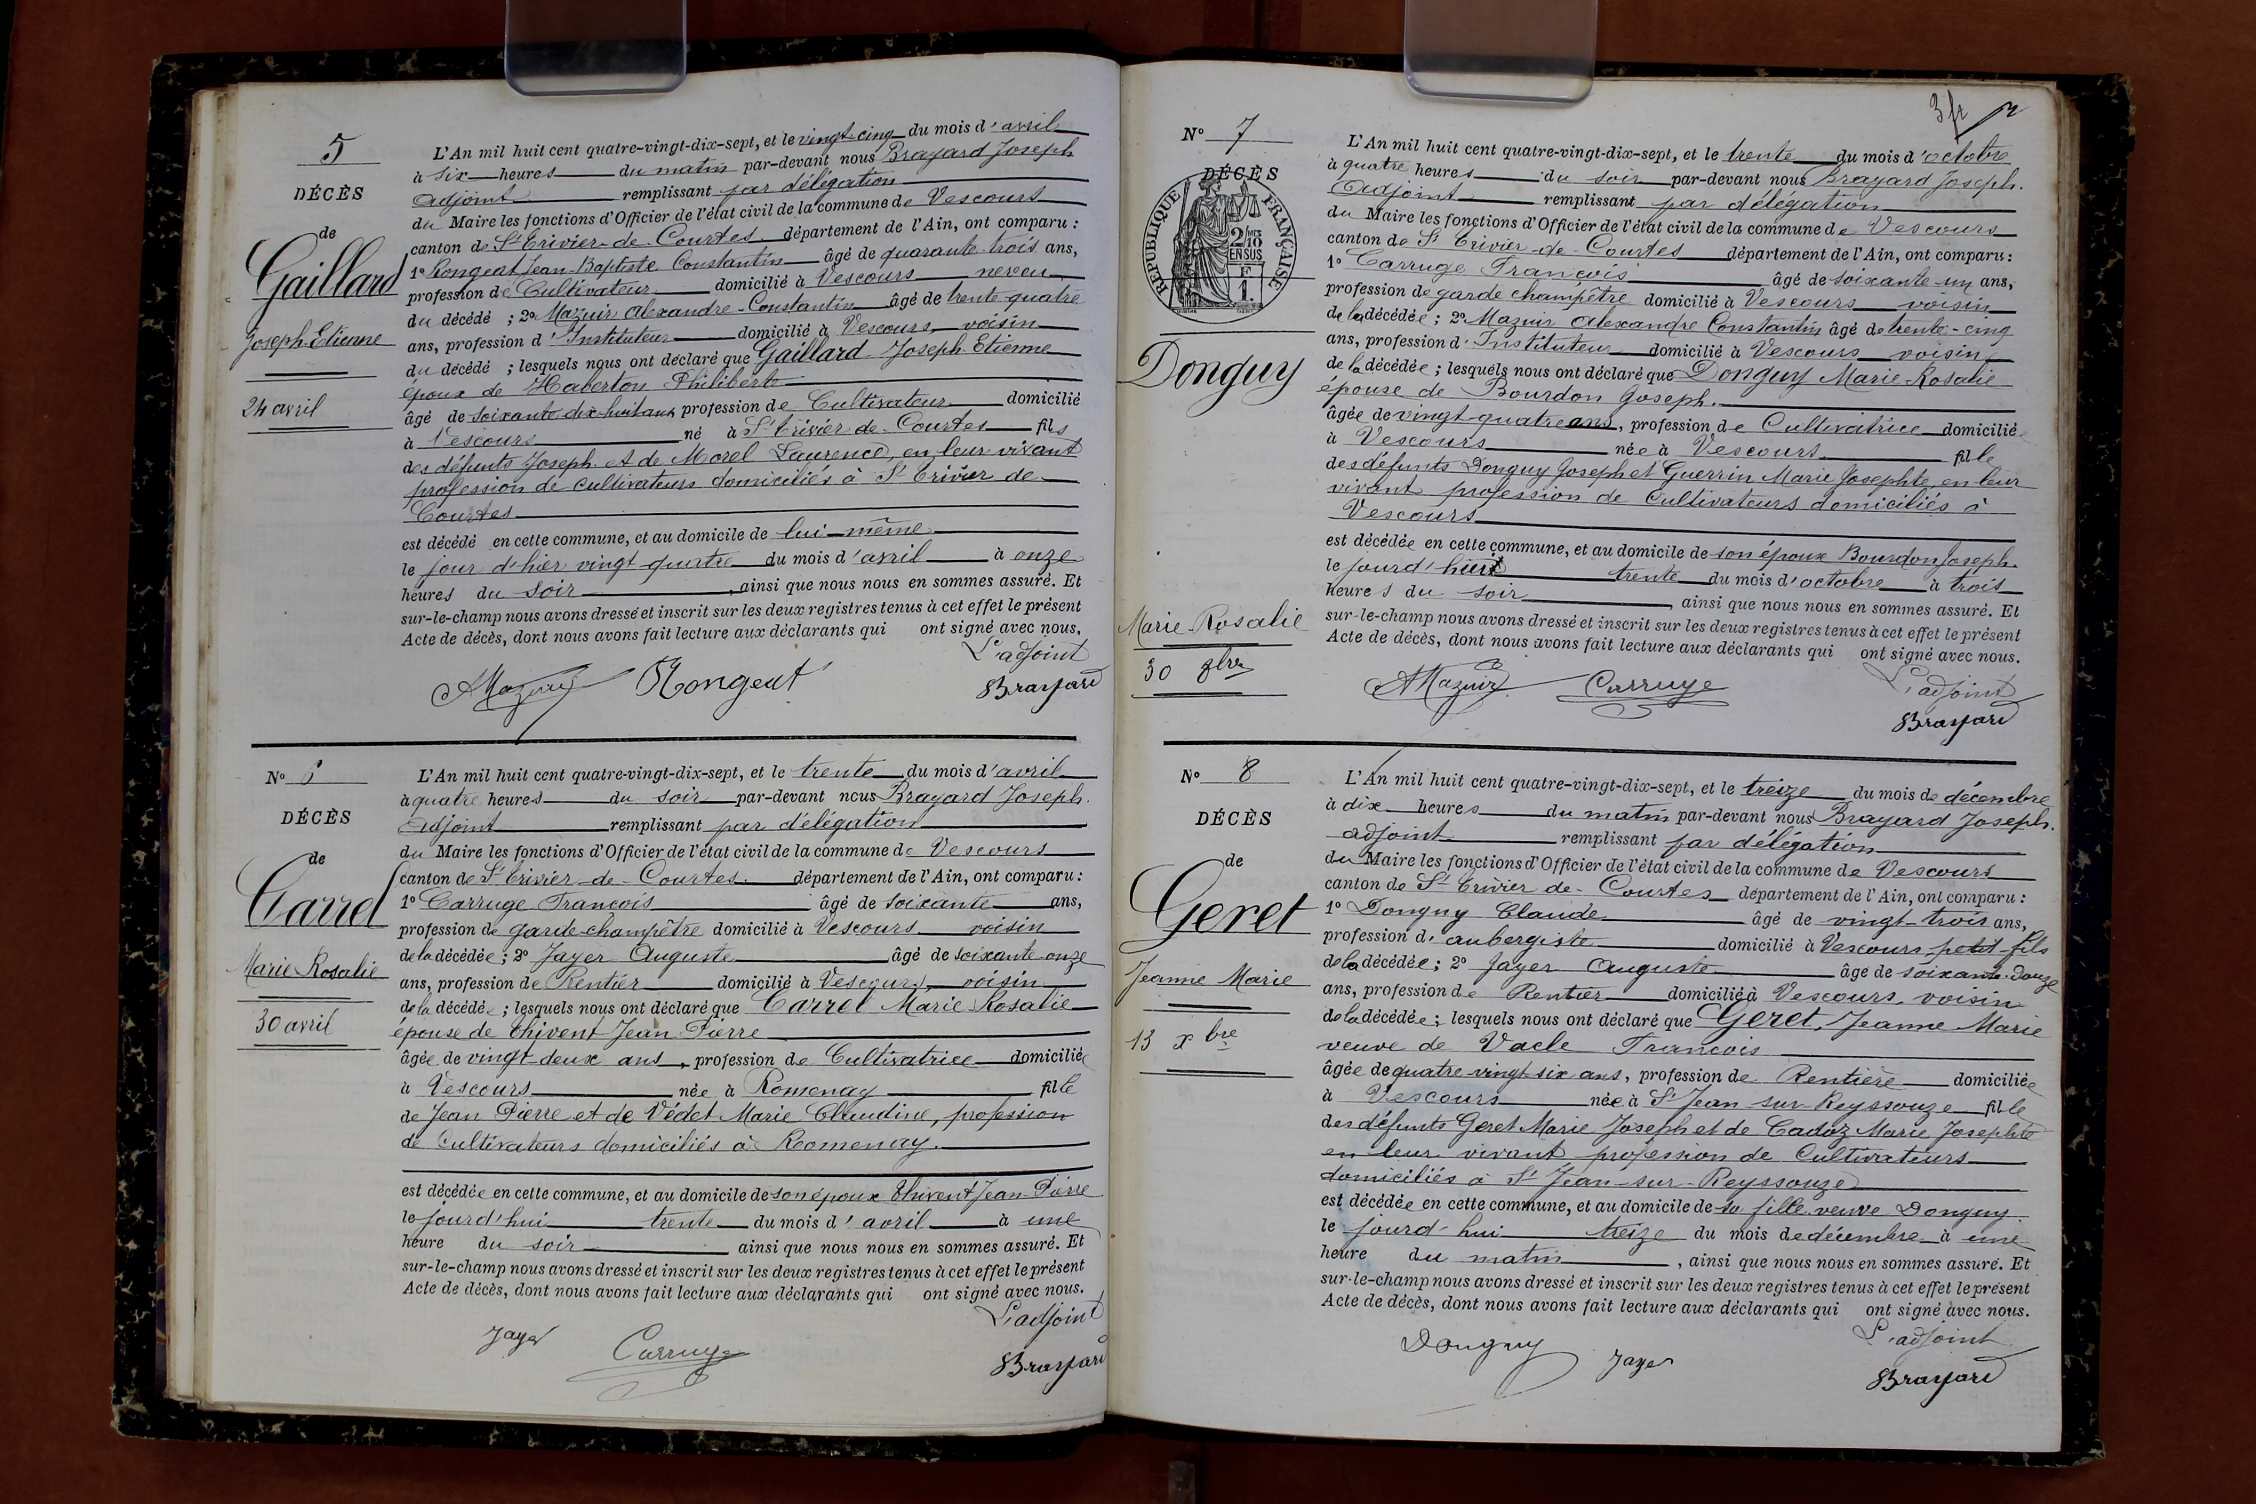 5
DÉCÈS
de
Gaillard
Joseph Etienne
24 avril
L'An mil huit cent quatre-vingt-dix-sept, et le vingt-cinq du mois d'avril
à six heures du matin par-devant nous Brayard Joseph
adjoint remplissant par délégation
du Maire les fonctions d'Officier de l'état civil de la commune de Vescours
canton de St Trivier-de-Courtes département de l'Ain, ont comparu :
1º Rongeat Jean-Baptiste Constantin âgé de quarante-trois ans,
profession de Cultivateur domicilié à Vescours neveu
du décédé ; 2º Mazuir Alexandre-Constantin âgé de trente-quatre
ans, profession d'Instituteur domicilié à Vescours voisin
du décédé ; lesquels nous ont déclaré que Gaillard Joseph Etienne
époux de Philiberte
âgé de soixante-dix-huit ans, profession de Cultivateur domicilié
à Vescours né à St Trivier-de-Courtes fils
des défunts Joseph et de Morel Laurence, en leur vivant
profession de cultivateurs domiciliés à St Trivier de
Courtes
est décédé en cette commune, et au domicile de lui-même
le jour d'hier vingt-quatre du mois d'avril à onze
heures du soir, ainsi que nous nous en sommes assuré. Et
sur-le-champ nous avons dressé et inscrit sur les deux registres tenus à cet effet le présent
Acte de décès, dont nous avons fait lecture aux déclarants qui ont signé avec nous.
L'adjoint
AMazuir Rongeat Brayard
Nº 6
DÉCÈS
de
Carrel
Marie Rosalie
30 avril
L'An mil huit cent quatre-vingt-dix-sept, et le trente du mois d'avril
à quatre heures du soir par-devant nous Brayard Joseph.
adjoint remplissant par délégation
du Maire les fonctions d'Officier de l'état civil de la commune de Vescours
canton de St Trivier-de-Courtes. département de l'Ain, ont comparu :
1º Carruge François âgé de soixante ans,
profession de garde-champêtre domicilié à Vescours voisin
de la décédée ; 2º Jayer Auguste âgé de soixante-onze
ans, profession de Rentier domicilié à Vescours, voisin
de la décédée ; lesquels nous ont déclaré que Carrel Marie Rosalie
épouse de Thivent Jean-Pierre
âgée de vingt-deux ans, profession de Cultivatrice domiciliée
à Vescours née à Romenay fille
de Jean Pierre et de Védet Marie Claudine, profession
de Cultivateurs domiciliés à Romenay.
est décédée en cette commune, et au domicile de son époux Thivent Jean-Pierre
le jourd'hui trente du mois d'avril à une
heure du soir ainsi que nous nous en sommes assuré. Et
sur-le-champ nous avons dressé et inscrit sur les deux registres tenus à cet effet le présent
Acte de décès, dont nous avons fait lecture aux déclarants qui ont signé avec nous.
L'adjoint
Jayer Carruge Brayard
3 fr
Nº 7
DÉCÈS
RÉPUBLIQUE FRANÇAISE
2/10 EN SUS
F
1
Donguy
Marie-Rosalie
30 8bre
L'An mil huit cent quatre-vingt-dix-sept, et le trente du mois d'octobre
à quatre heures du soir par-devant nous Brayard Joseph.
Adjoint remplissant par délégation
du Maire les fonctions d'Officier de l'état civil de la commune de Vescours
canton de St Trivier-de-Courtes département de l'Ain, ont comparu :
1º Carruge François âgé de soixante-un ans,
profession de garde champêtre domicilié à Vescours voisin
de la décédée ; 2º Mazuir Alexandre Constantin âgé de trente-cinq
ans, profession d'Instituteur domicilié à Vescours voisin
de la décédée ; lesquels nous ont déclaré que Donguy Marie-Rosalie
épouse de Bourdon Joseph.
âgée de vingt-quatre ans, profession de Cultivatrice domiciliée
à Vescours née à Vescours fille
des défunts Donguy Joseph et Guerrin Marie Josephte, en leur
vivant profession de Cultivateurs domiciliés à
Vescours
est décédée en cette commune, et au domicile de son époux Bourdon Joseph.
le jourd'hui trente du mois d'octobre à trois
heures du soir, ainsi que nous nous en sommes assuré. Et
sur-le-champ nous avons dressé et inscrit sur les deux registres tenus à cet effet le présent
Acte de décès, dont nous avons fait lecture aux déclarants qui ont signé avec nous.
L'adjoint
AMazuir Carruge Brayard
Nº 8
DÉCÈS
de
Geret
Jeanne Marie
13 xbre
L'An mil huit cent quatre-vingt-dix-sept, et le treize du mois de décembre
à dix heures du matin par-devant nous Brayard Joseph.
adjoint remplissant par délégation
du Maire les fonctions d'Officier de l'état civil de la commune de Vescours
canton de St Trivier de-Courtes département de l'Ain, ont comparu :
1º Donguy Claude âgé de vingt-trois ans,
profession d'aubergiste domicilié à Vescours, petit-fils
de la décédée ; 2º Jayer Auguste âgé de soixante-douze
ans, profession de Rentier domicilié à Vescours, voisin
de la décédée ; lesquels nous ont déclaré que Geret, Jeanne Marie
veuve de Vacle François
âgée de quatre-vingt-six ans, profession de Rentière domiciliée
à Vescours née à St Jean-sur-Reyssouze fille
des défunts Geret Marie Joseph et de Cadoz Marie Josephte
en leur vivant profession de Cultivateurs
domiciliés à St Jean-sur-Reyssouze
est décédée en cette commune, et au domicile de sa fille veuve Donguy.
le jourd'hui treize du mois de décembre à une
heure du matin, ainsi que nous nous en sommes assuré. Et
sur-le-champ nous avons dressé et inscrit sur les deux registres tenus à cet effet le présent
Acte de décès, dont nous avons fait lecture aux déclarants qui ont signé avec nous.
L'adjoint
Donguy Jayer Brayard